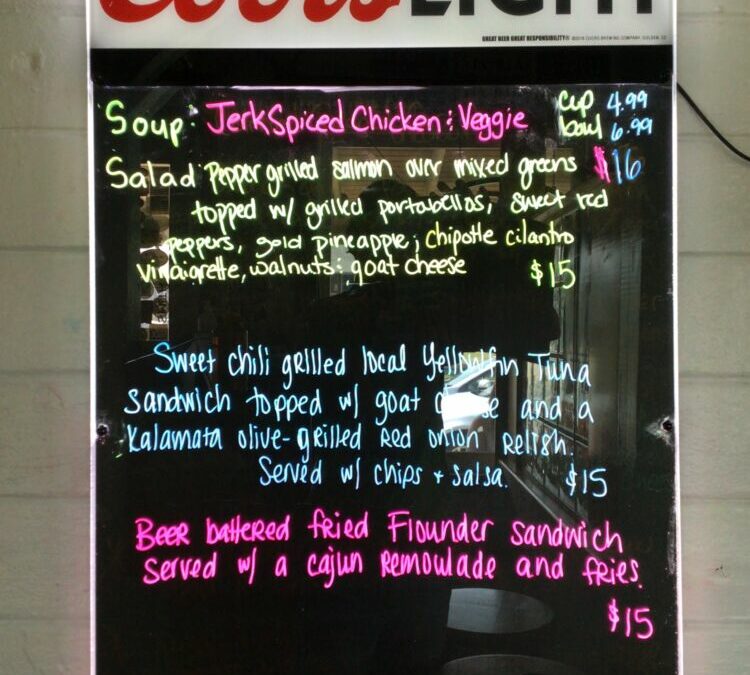 Coors LIGHT
GREAT BEER GREAT RESPONSIBILITY®
Soup: Jerk Spiced Chicken : Veggie cup 4.99
bowl 6.99
Salad Pepper grilled salmon over mixed greens $16
topped w/ grilled portabellas, sweet red
peppers, gold pineapple; chipotle cilantro
vinaigrette, walnuts : goat cheese $15
Sweet chili grilled local Yellowfin Tuna
sandwich topped w/ goat cheese and a
Kalamata olive-grilled red onion relish.
Served w/ chips + salsa. $15
Beer battered fried Flounder sandwich
served w/ a cajun remoulade and fries.
$15